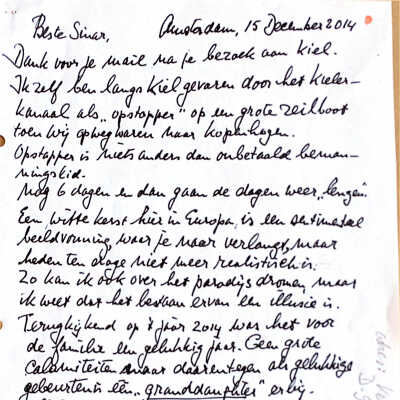 Beste Sinar, Amsterdam, 15 December 2014
Dank voor je mail na je bezoek aan Kiel.
Ik zelf ben langs Kiel gevaren door het Kieler-
kanaal als „opstapper" op een grote zeilboot
toen wij op weg waren naar Kopenhagen.
Opstapper is niets anders dan onbetaald beman-
ningslid.
Nog 6 dagen en dan gaan de dagen weer „lengen".
Een witte kerst hier in Europa, is een sentimenteel
beeldvorming, waar je naar verlangt, maar
heden ten dage niet meer realistisch is.
Zo kan ik ook over het paradijs dromen, maar
ik weet dat het bestaan ervan een illusie is.
Terugkijkend op 't jaar 2014 was het voor
de familie een gelukkig jaar. Geen grote
calamiteiten maar daarentegen als gelukkige
gebeurtenis een „granddaughter" erbij.